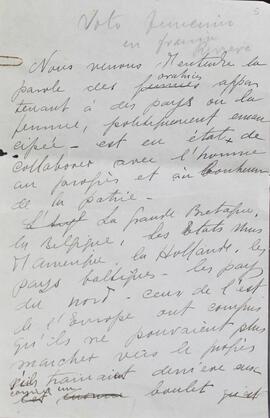 Voto femenin
en france
5
Nous venons d'entendre la
parole des femmes oratrices appar
tenant à des pays où la
femme, politiquement éman
cipée - est en état de
collaborer avec l'homme
au progrès et au bonheur
de la patrie.
La Grande Bretagne,
la Belgique, les Etats Unis
d'Amerique, la Hollande, les
pays baltiques - les pays
du nord - ceux de l'est
de l'Europe ont compris
qu'ils ne pouvaient plus
marcher vers le progrès
s'ils trainaient derriere eux
comme un
boulet